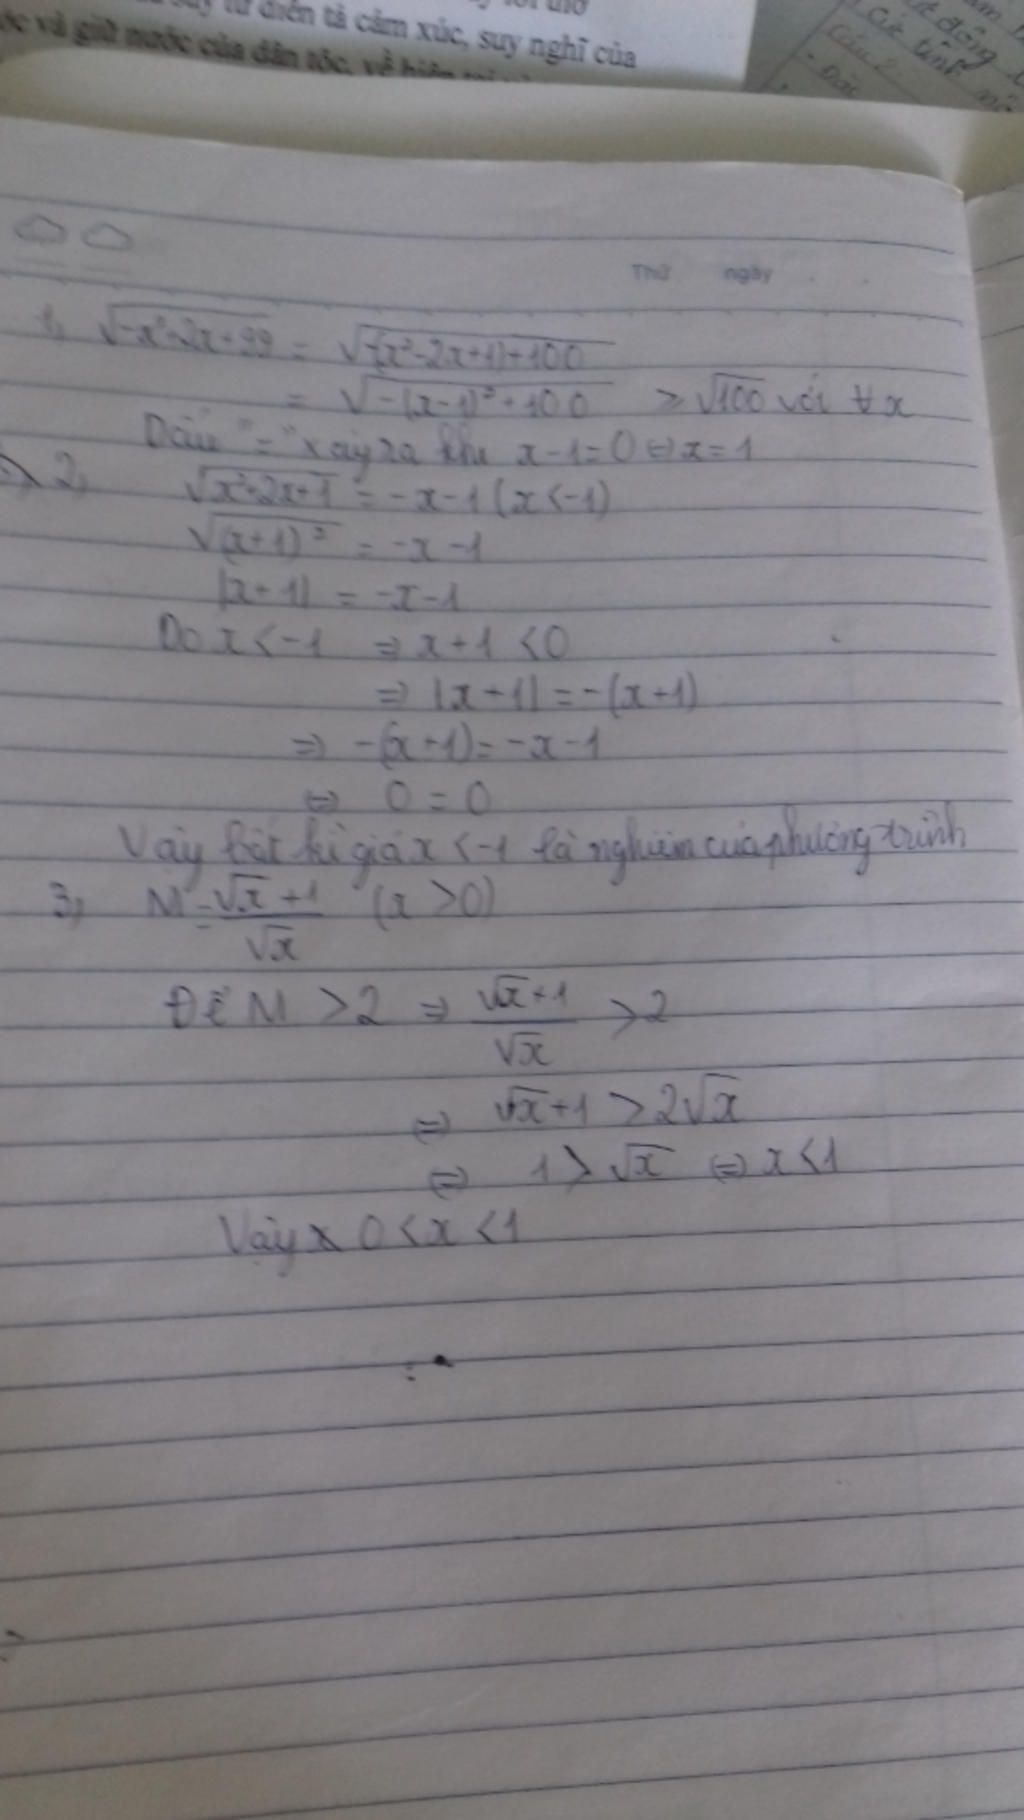 từ diễn tả cảm xúc, suy nghĩ của
và giữ nước của dân tộc, về
Câu 2.
Thứ ngày
1, √-x²-2x+99 = √-(x²-2x+1)+100
= √-(x-1)²+100 ≥ √100 với ∀x
Dấu "=" xảy ra khi x-1=0 ⇔ x=1
2, √x²+2x+1 = -x-1 (x<-1)
√(x+1)² = -x-1
|x+1| = -x-1
Do x<-1 ⇒ x+1<0
⇒ |x+1| = -(x+1)
⇒ -(x+1) = -x-1
⇔ 0 = 0
Vậy bất kì giá x<-1 là nghiệm của phương trình
3, M = √x+1 / √x (x>0)
Để M > 2 ⇒ √x+1 / √x > 2
⇔ √x+1 > 2√x
⇔ 1 > √x ⇔ x<1
Vậy 0<x<1